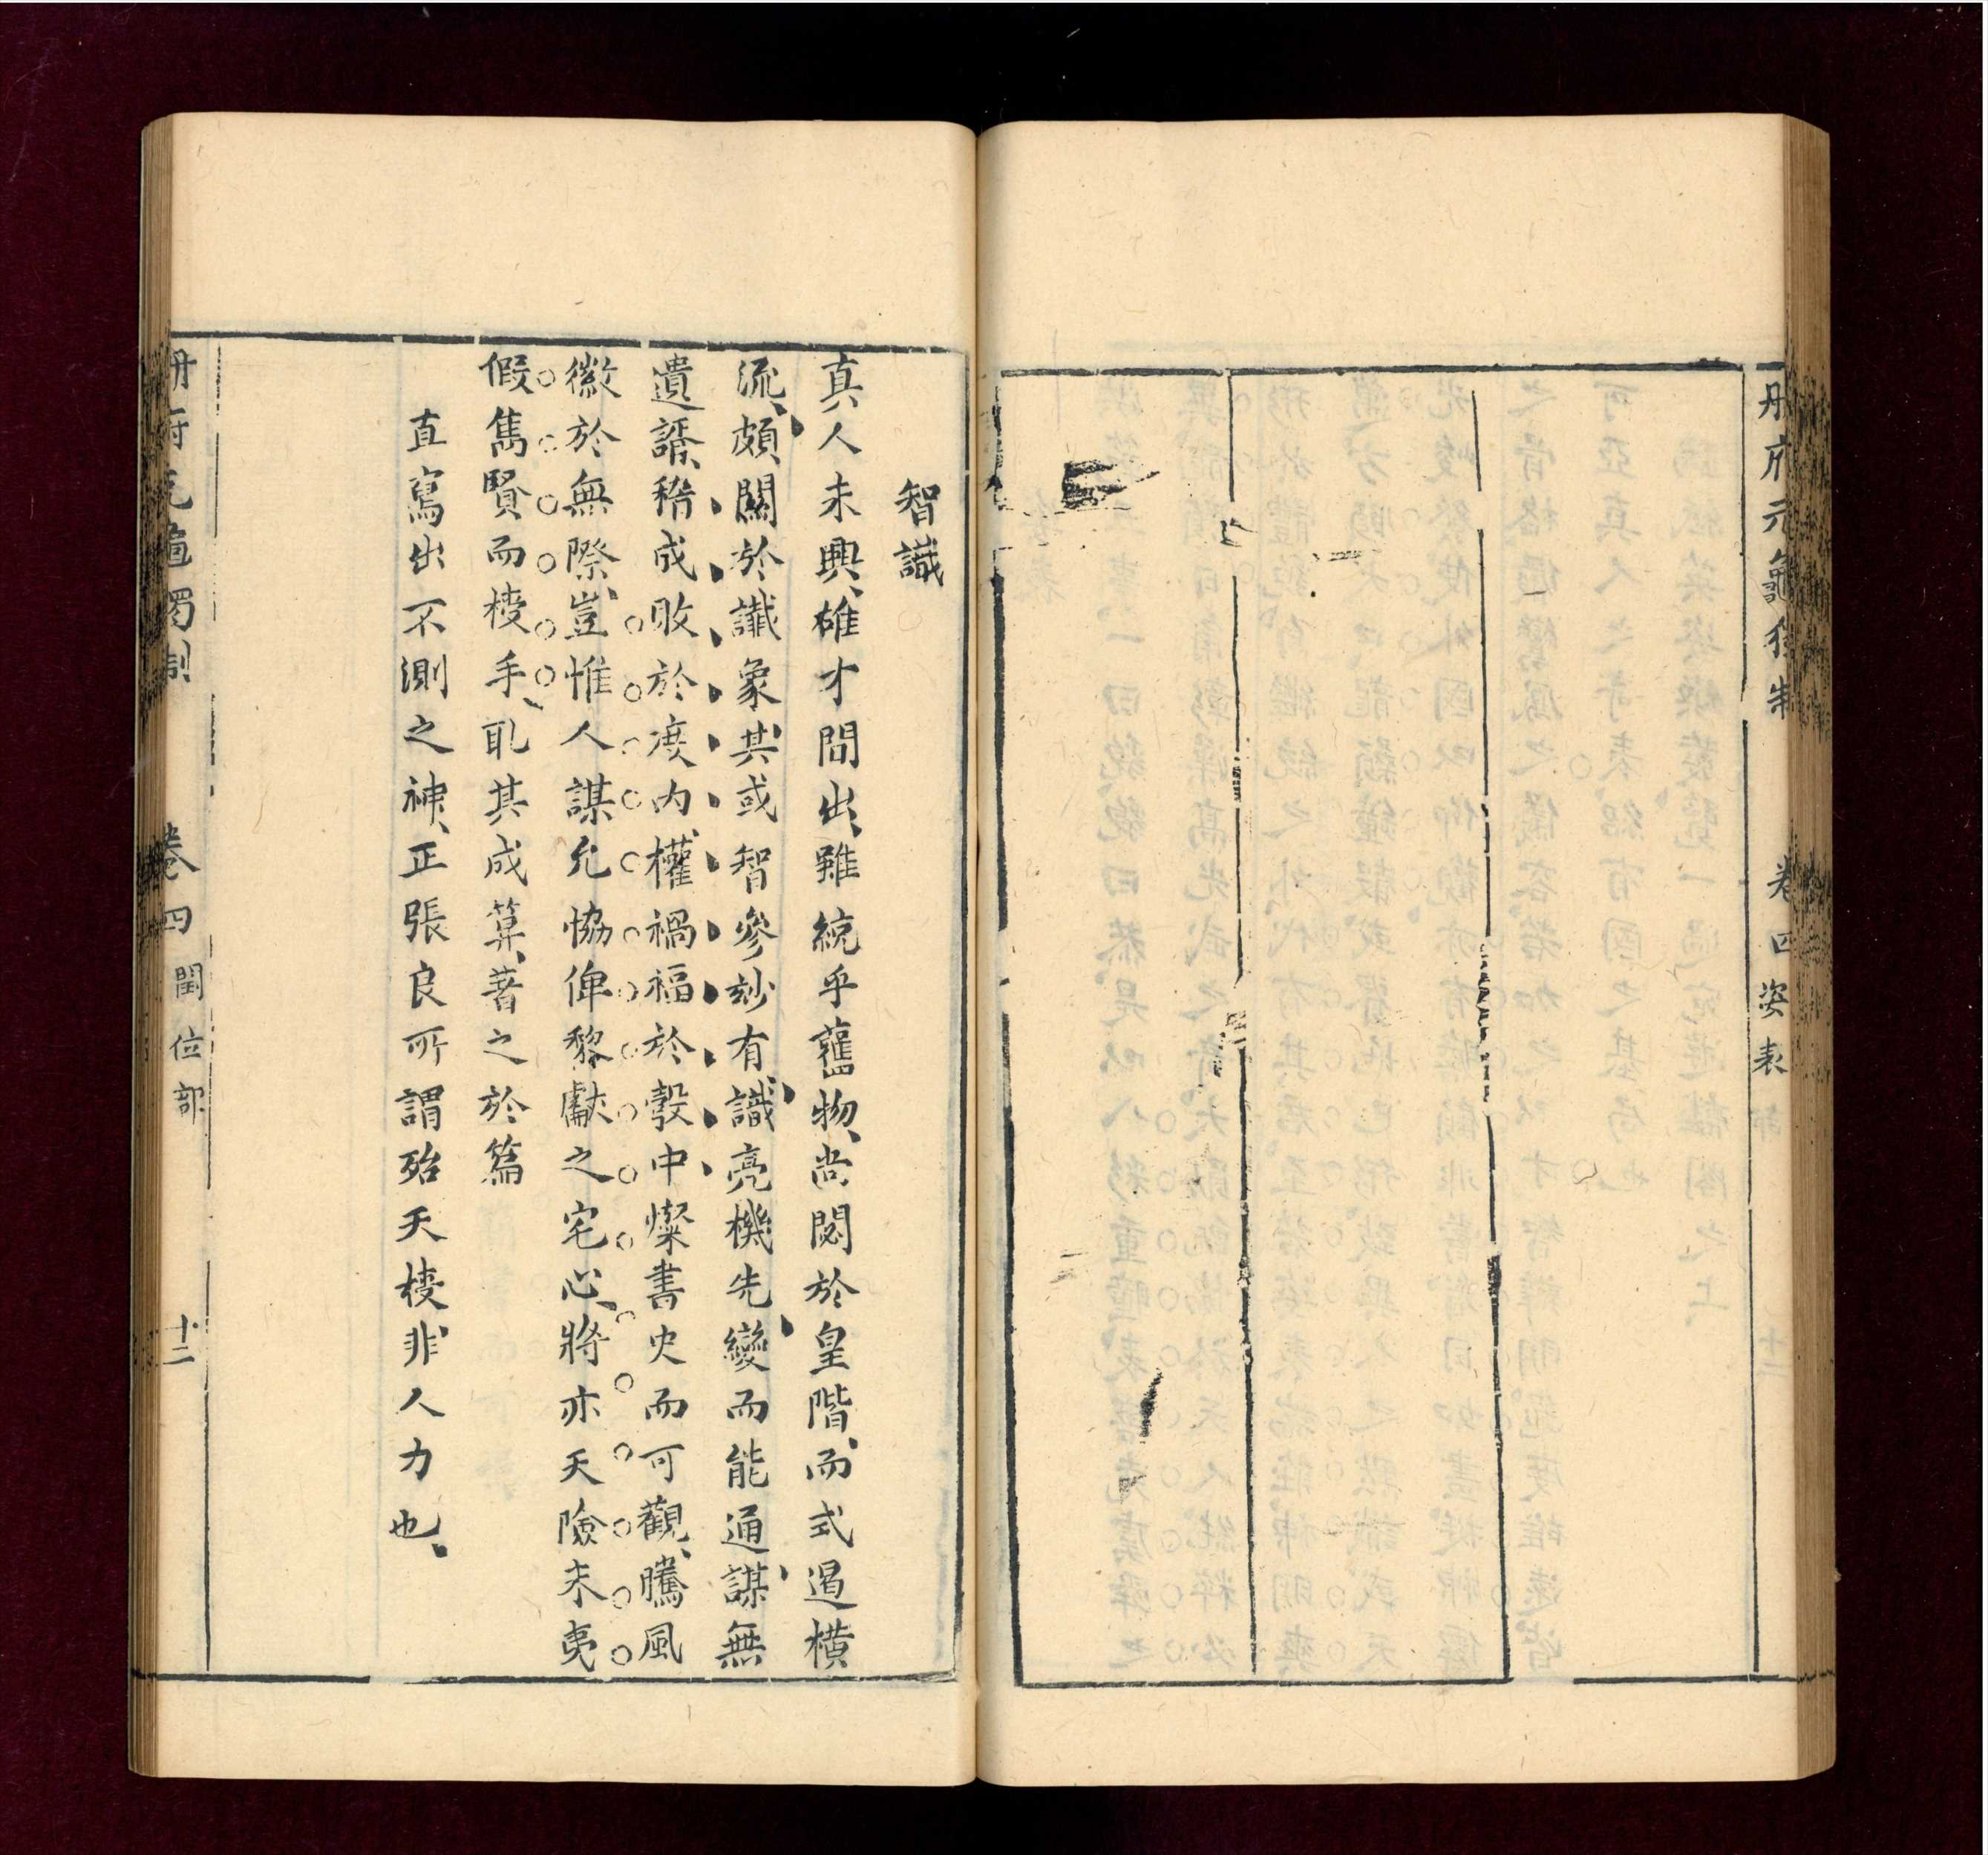 册府元龜獨制 卷四 姿表
智識
真人未興雄才間出雖統乎舊物尚閟於皇階而式遏橫
流頗關於讖象其或智參玅有識亮機先變而能通謀無
遺諝稽成敗於度內權禍福於彀中燦書史而可觀騰風
徽於無際豈惟人謀允協俾黎獻之宅心將亦天險未夷
假雋賢而㨗手亂其成算著之於篇
直寫出不測之神正張良所謂殆天㨗非人力也
册府元龜獨制 卷四 閏位部 十二